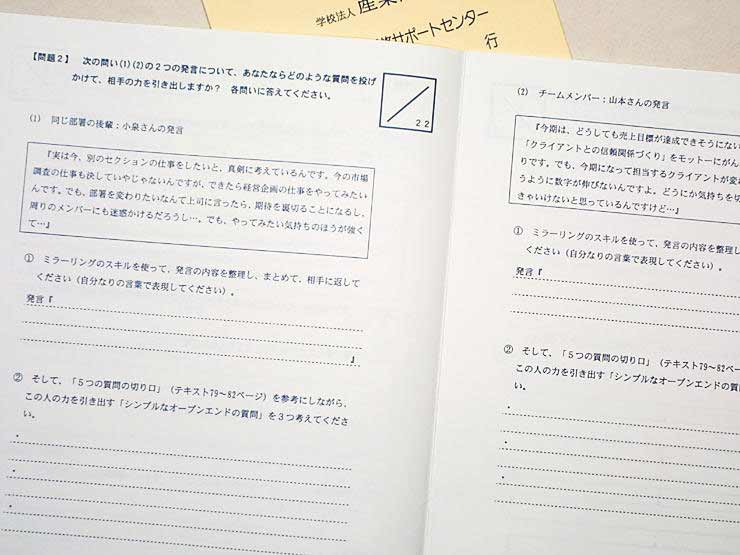 学校法人 産業
サポートセンター
行
【問題2】 次の問い(1)(2)の2つの発言について、あなたならどのような質問を投げ
かけて、相手の力を引き出しますか? 各問いに答えてください。
22
(1) 同じ部署の後輩;小泉さんの発言
『実は今、別のセクションの仕事をしたいと、真剣に考えているんです。今の市場
調査の仕事も決していやじゃないんですが、できたら経営企画の仕事をやってみたい
んです。でも、部署を変わりたいなんて上司に言ったら、期待を裏切ることになるし、
周りのメンバーにも迷惑かけるだろうし…。でも、やってみたい気持ちのほうが強く
て…』
① ミラーリングのスキルを使って、発言の内容を整理し、まとめて、相手に返して
ください(自分なりの言葉で表現してください)。
発言『
』
② そして、「5つの質問の切り口」(テキスト79~82ページ)を参考にしながら、
この人の力を引き出す「シンプルなオープンエンドの質問」を3つ考えてくださ
い。
・
・
・
(2) チームメンバー;山本さんの発言
『今期は、どうしても売上目標が達成できそうにない
「クライアントとの信頼関係づくり」をモットーにがん
りです。でも、今期になって担当するクライアントが変わ
うように数字が伸びないんですよ。どうにか気持ちを切
きゃいけないと思っているんですけど…』
① ミラーリングのスキルを使って、発言の内容を整理
ください(自分なりの言葉で表現してください)。
発言『
② そして、「5つの質問の切り口」(テキスト79~82ペー
この人の力を引き出す「シンプルなオープンエンドの質問
い。
・
・
・